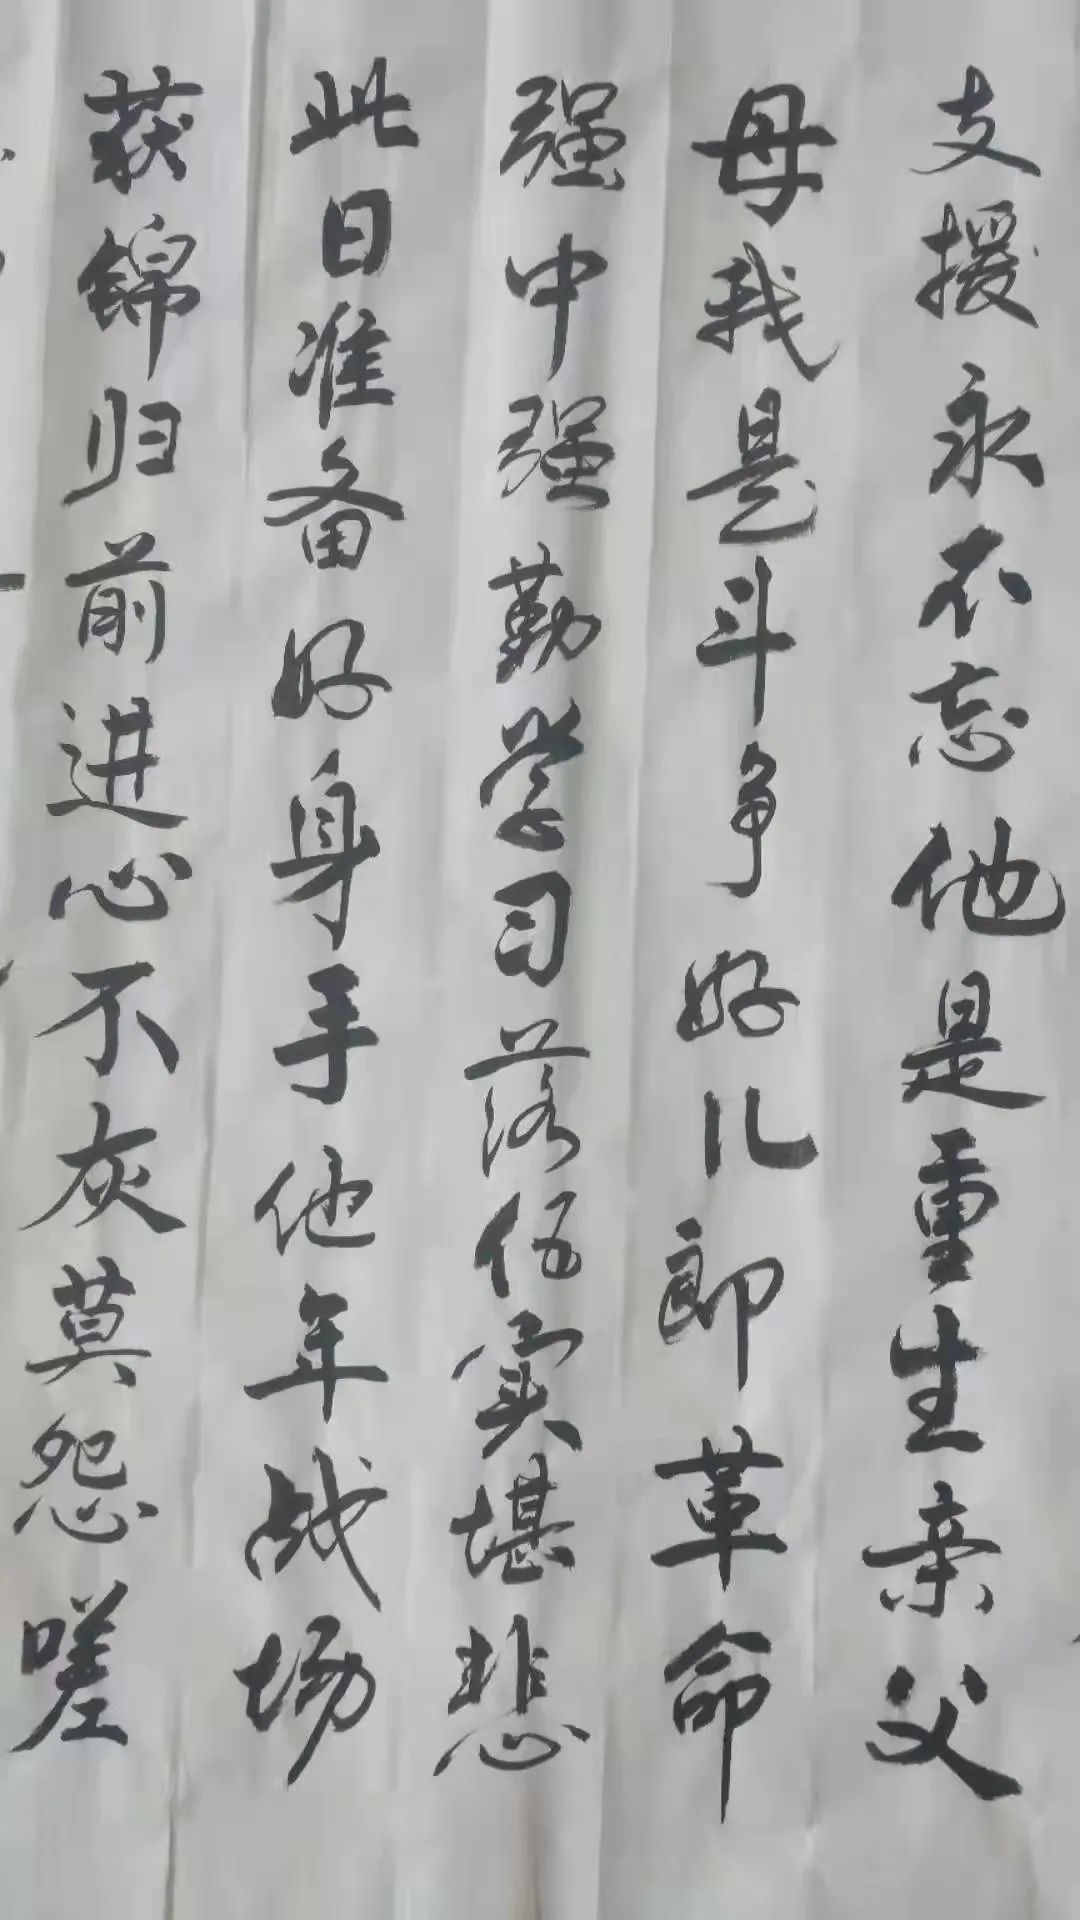 支援永不忘他是重生亲父
母我是斗争好儿郎革命
强中强勤学习落伍实堪悲
此日准备好身手他年战场
获锦归前进心不灰莫怨嗟